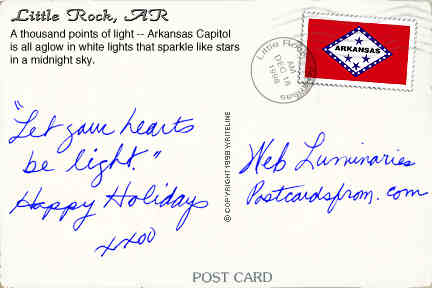 Little Rock, AR
A thousand points of light -- Arkansas Capitol
is all aglow in white lights that sparkle like stars
in a midnight sky.
Little Rock
AM
DEC 18
1998
Arkansas
ARKANSAS
"Let your hearts
be light."
Happy Holidays
xxoo
© COPYRIGHT 1998 WRITELINE
Web Luminaries
Postcardsfrom.com
POST CARD